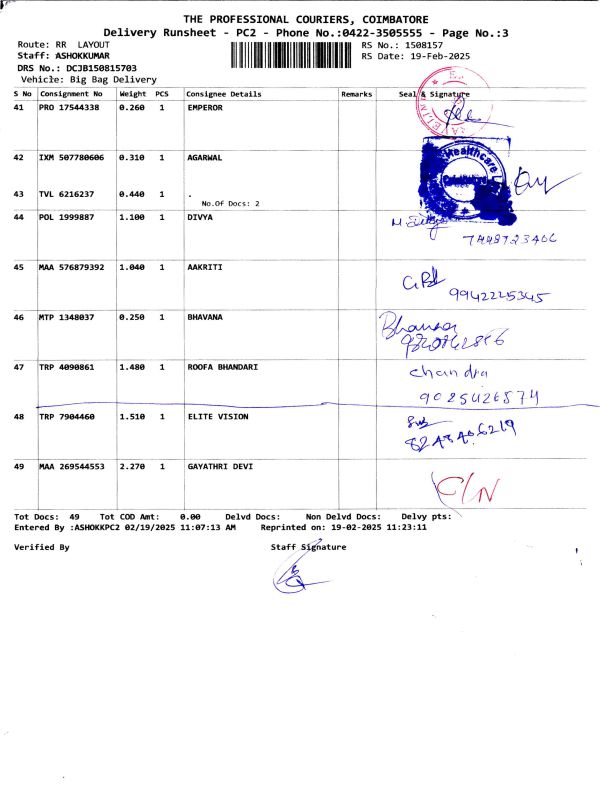 THE PROFESSIONAL COURIERS, COIMBATORE
Delivery Runsheet - PC2 - Phone No.:0422-3505555 - Page No.:3
Route: RR LAYOUT RS No.: 1508157
Staff: ASHOKKUMAR RS Date: 19-Feb-2025
DRS No.: DCJB150815703
Vehicle: Big Bag Delivery
S No Consignment No Weight PCS Consignee Details Remarks Seal & Signature
41 PRO 17544338 0.260 1 EMPEROR
42 IXM 507780606 0.310 1 AGARWAL
Healthcare
43 TVL 6216237 0.440 1 .
No.Of Docs: 2
44 POL 1999887 1.100 1 DIVYA
7448723406
45 MAA 576879392 1.040 1 AAKRITI
9942225345
46 MTP 1348037 0.250 1 BHAVANA Bhavana
47 TRP 4090861 1.480 1 ROOFA BHANDARI chandra
9025426574
48 TRP 7904460 1.510 1 ELITE VISION
49 MAA 269544553 2.270 1 GAYATHRI DEVI C/N
Tot Docs: 49 Tot COD Amt: 0.00 Delvd Docs: Non Delvd Docs: Delvy pts:
Entered By :ASHOKKPC2 02/19/2025 11:07:13 AM Reprinted on: 19-02-2025 11:23:11
Verified By Staff Signature